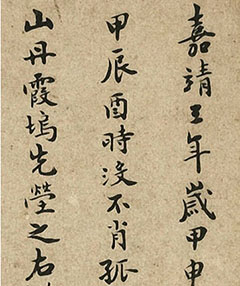 嘉靖三年歲甲申
甲辰酉時沒不肖孤
山丹霞塢先塋之右